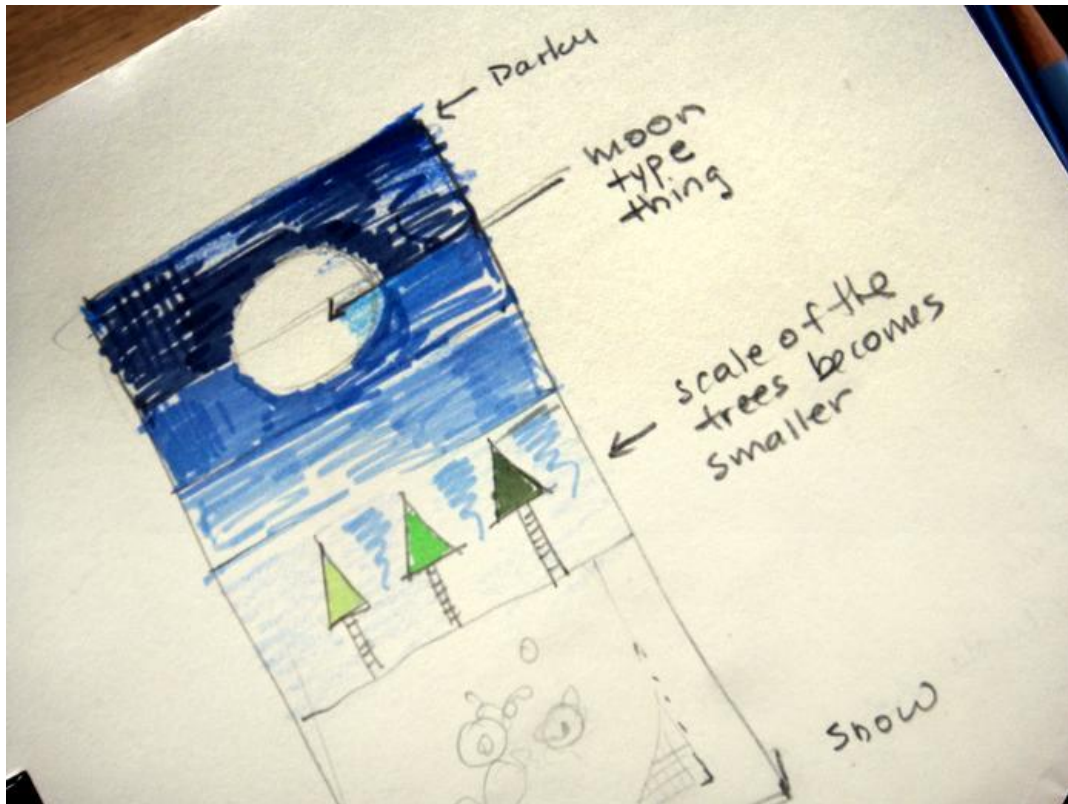 Darky
moon
type
thing
scale of the
trees becomes
smaller
snow